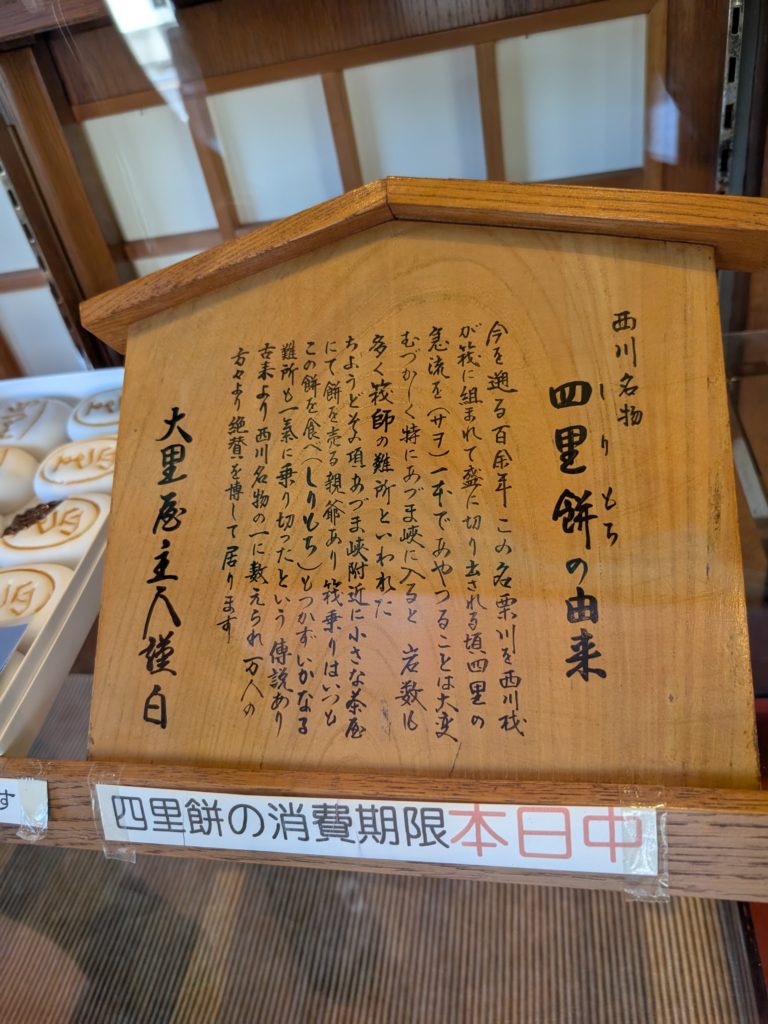 西川名物
四里餅の由来
しりもち
今を遡る百余年 この名栗川を西川材
が筏に組まれて盛に切り出される頃四里の
急流を(サヲ)一本であやつることは大変
むづかしく特にあづま峡に入ると 岩数も
多く筏師の難所といわれた
ちようどその頃あづま峡附近に小さな茶屋
にて餅を売る親爺あり 筏乗りはいつも
この餅を食べ(しりもち)もつかずいかなる
難所も一気に乗り切ったという 伝説あり
古来より西川名物の一に数えられ万人の
方々より絶賛を博して居ります
大里屋主人謹白
す
四里餅の消費期限本日中